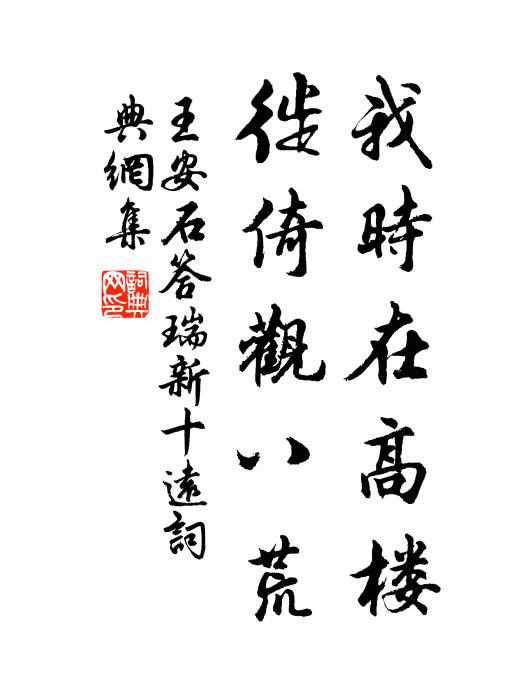 我時在高楼
徙倚觀八荒
王安石答瑞新十遠詞
典網集
詞典网印